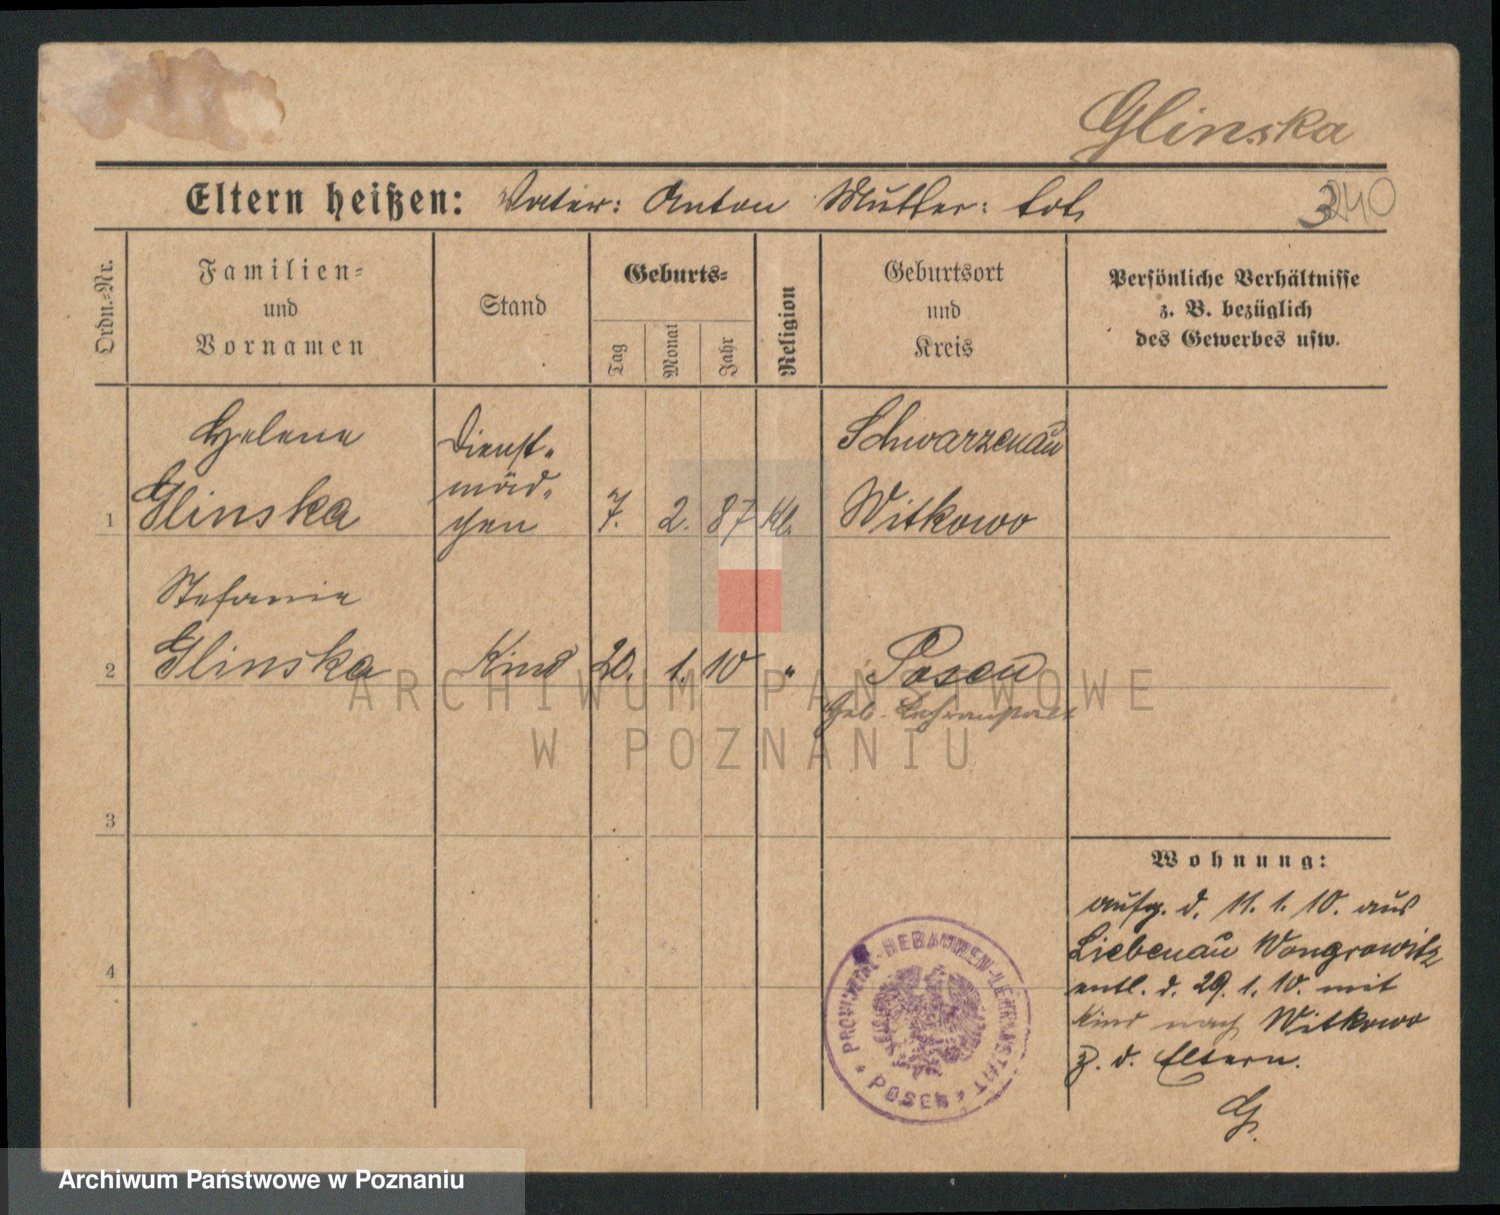 Glinska
Eltern heißen: Vater: Anton Mutter: tot.
340
Ordn.-Nr.
Familien-
und
Vornamen
Stand
Geburts-
Tag
Monat
Jahr
Religion
Geburtsort
und
Kreis
Persönliche Verhältnisse
z. B. bezüglich
des Gewerbes usw.
Helene Dienst- Schwarzenau
1 Glinska mäd- 7. 2. 87 kl. Witkowo
chen
Stefanie
2 Glinska Kind 20. 1. 10 " Posen
Geb. Lehranstalt
3
4
Wohnung:
aufg. d. 11. 1. 10. aus
Liebenau Wongrowitz
entl. d. 29. 1. 10. mit
Kind nach Witkowo
z. d. Eltern.
G.
PROVINZIAL-HEBAMMEN-LEHRANSTALT
* POSEN *
ARCHIWUM PAŃSTWOWE
W POZNANIU
Archiwum Państwowe w Poznaniu